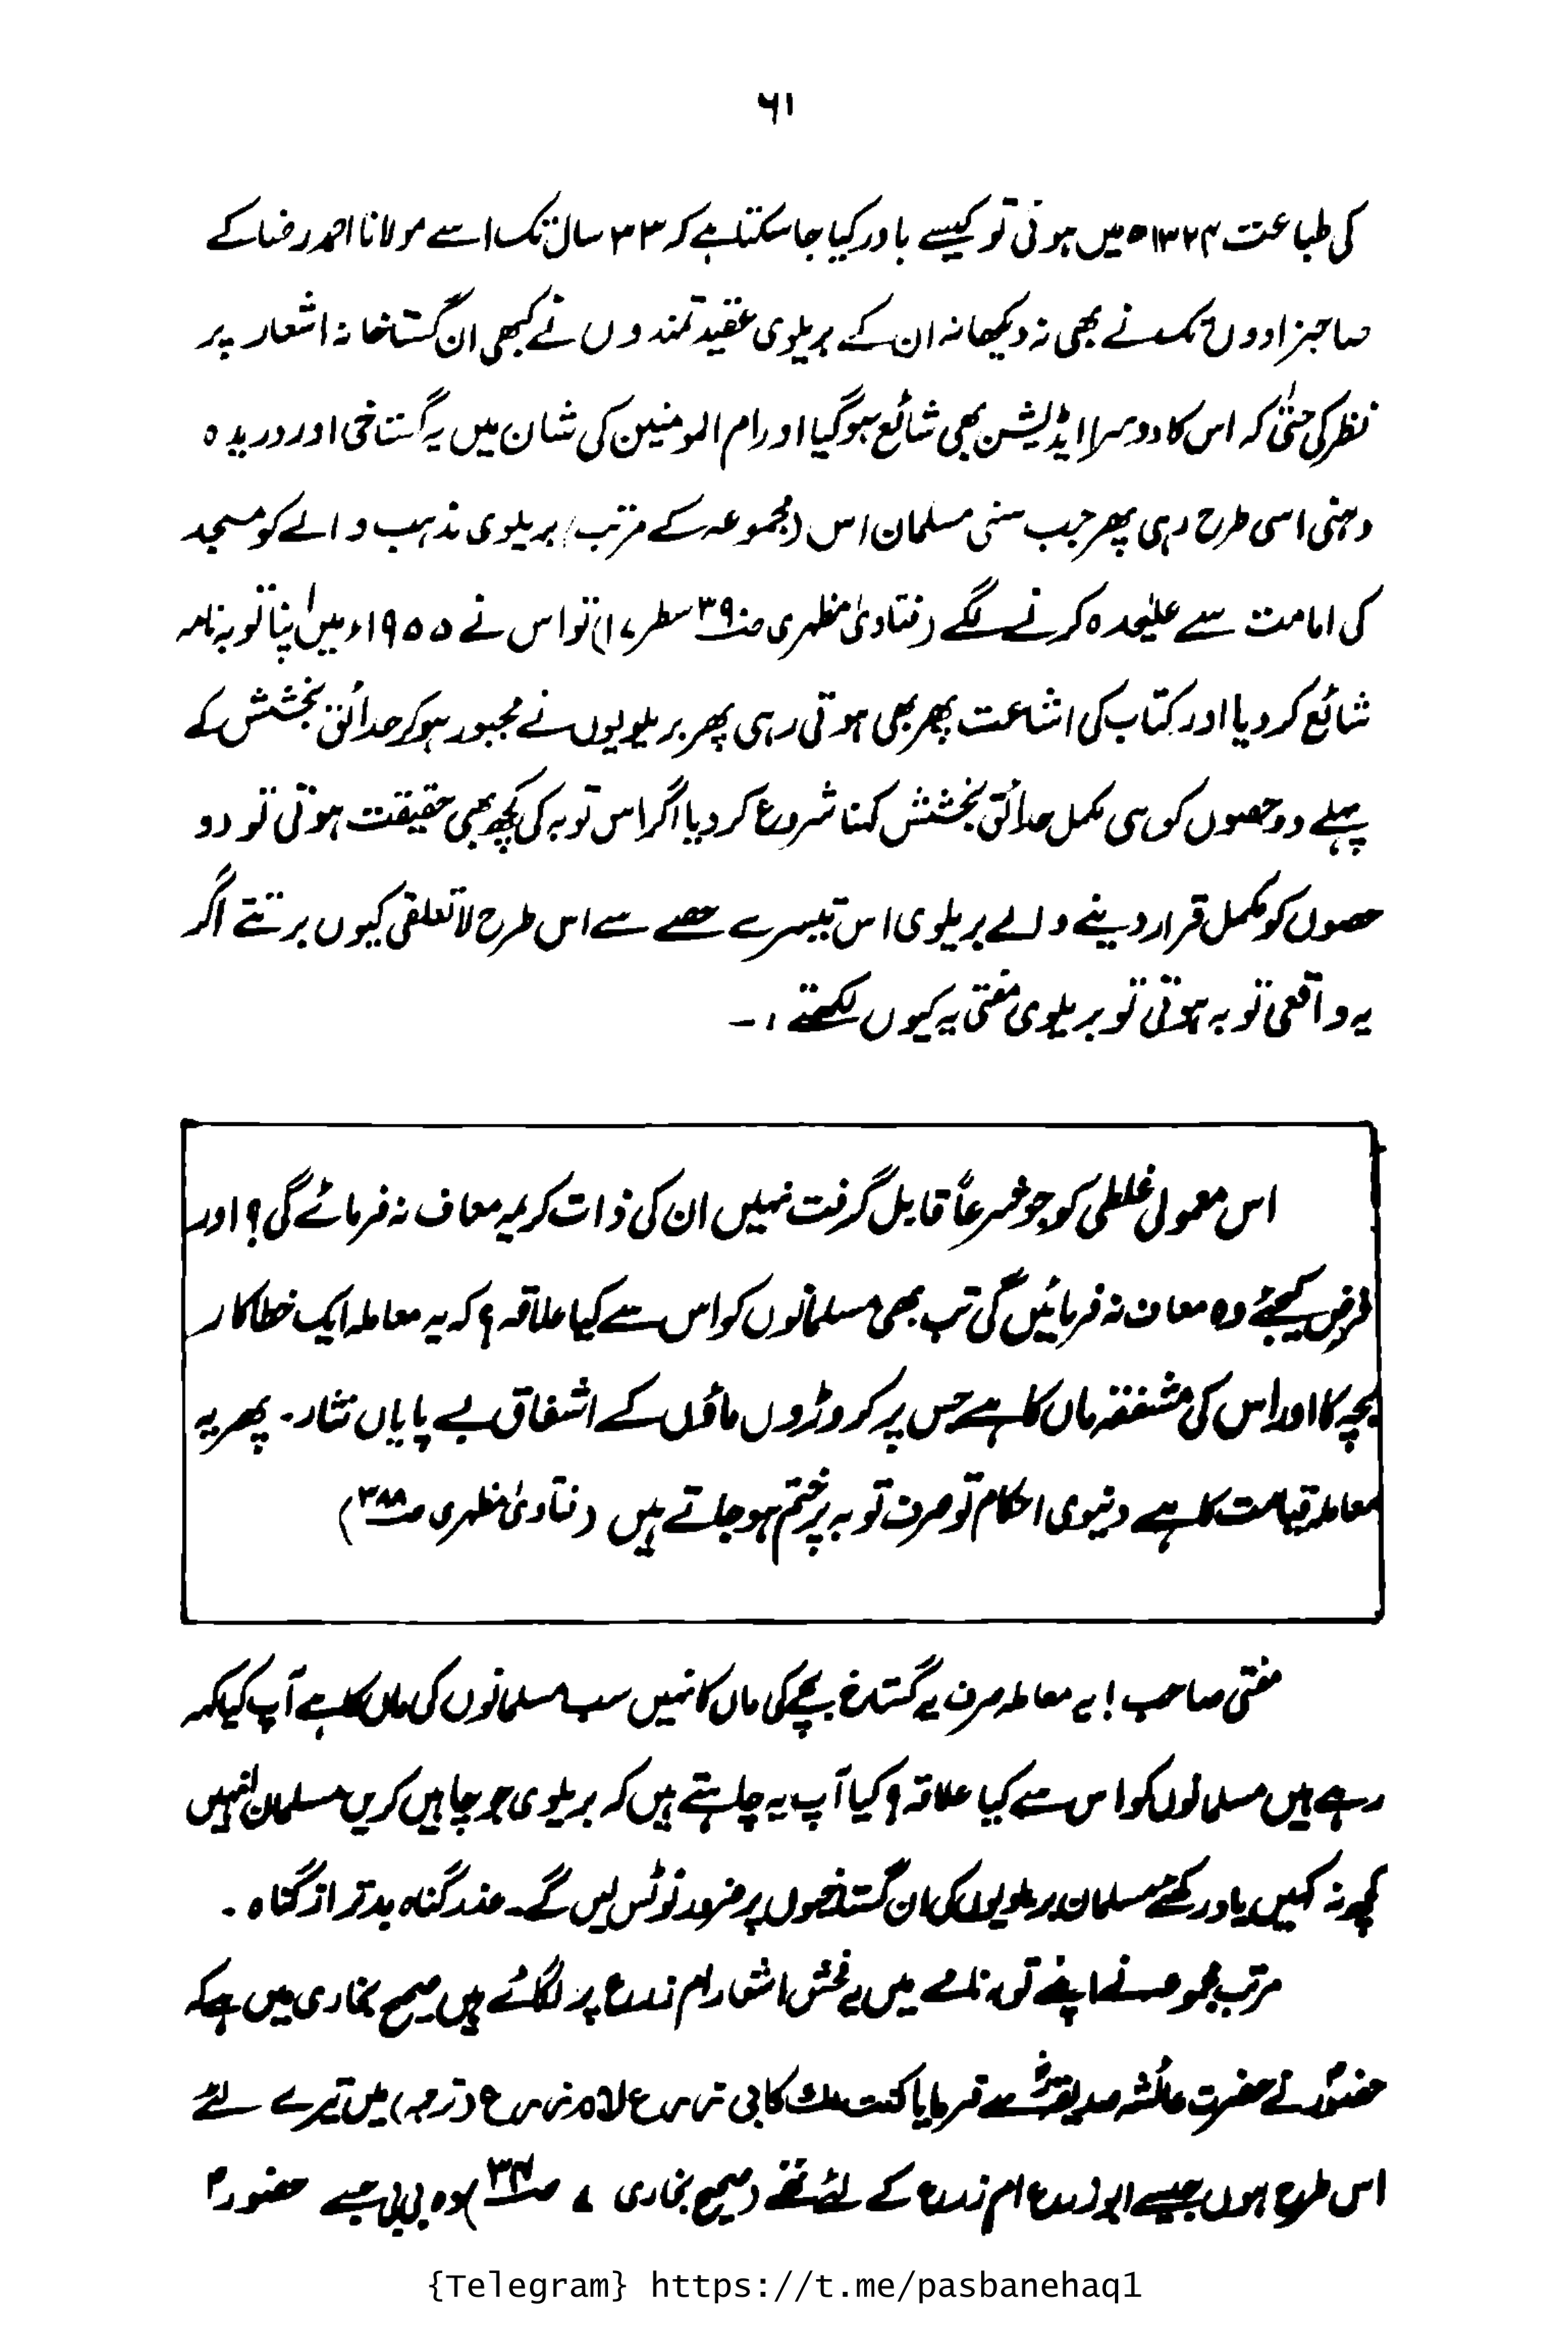 ۶۱
کی طباعت ۱۳۲۴ھ میں ہوئی تو کیسے باور کیا جا سکتا ہے کہ ۳۳ سال تک اسے مولانا احمد رضا کے
صاحبزادوں تک نے بھی نہ دیکھا نہ ان کے بریلوی عقیدتمندوں نے کبھی ان گستاخانہ اشعار پر
نظر کی حتیٰ کہ اس کا دوسرا ایڈیشن بھی شائع ہوگیا اور ام المومنین کی شان میں یہ گستاخی اور دریدہ
دہنی اسی طرح رہی پھر جب سنی مسلمان اس (مجموعہ کے مرتب) بریلوی مذہب والے کو مسجد
کی امامت سے علیٰحدہ کرنے لگے (فتاویٰ مظہری صـ ۳۹ سطر ۱۷) تو اس نے ۱۹۵۵ء میں اپنا توبہ نامہ
شائع کر دیا اور کتاب کی اشاعت پھر بھی ہوتی رہی پھر بریلویوں نے مجبور ہوکر حدائق بخشش کے
پہلے دو حصوں کو ہی مکمل حدائق بخشش کہنا شروع کر دیا اگر اس توبہ کی کچھ بھی حقیقت ہوتی تو دو
حصوں کو مکمل قرار دینے والے بریلوی اس تیسرے حصے سے اس طرح لاتعلقی کیوں برتتے اگر
یہ واقعی توبہ ہوتی تو بریلوی مفتی یہ کیوں لکھتے :-
اس معمولی غلطی کو جو شرعاً قابل گرفت نہیں ان کی ذات کریمہ معاف نہ فرمائے گی؟ اور
فرض کیجئے وہ معاف نہ فرمائیں گی تب بھی مسلمانوں کو اس سے کیا علاقہ؟ کہ یہ معاملہ ایک خطاکار
بچہ کا اور اس کی مشفقہ ماں کا ہے جس پر کروڑوں ماؤں کے اشفاق بے پایاں نثار۔ پھر یہ
معاملہ قیامت کا ہے دنیوی احکام تو صرف توبہ پر ختم ہو جاتے ہیں (فتاویٰ مظہری صـ ۳۸۸)
مفتی صاحب! یہ معاملہ صرف یہ گستاخ بچے کی ماں کا نہیں سب مسلمانوں کی ماں کا ہے آپ کیا کہہ
رہے ہیں مسلمانوں کو اس سے کیا علاقہ؟ کیا آپ یہ چاہتے ہیں کہ بریلوی جو چاہیں کریں مسلمان انہیں
کچھ نہ کہیں یاد رکھئے مسلمان بریلویوں کی ان گستاخیوں پر ضرور نوٹس لیں گے۔ عذر گناہ بدتر از گناہ ۔
مرتب مجموعہ نے اپنے توبہ نامے میں یہ فحش اشعار ام زرع پر لگائے ہیں صحیح بخاری میں ہے کہ
حضورؐ نے حضرت عائشہ صدیقہؓ سے فرمایا کنت لک کابی زرع لام زرع (ترجمہ) میں تیرے لئے
اس طرح ہوں جیسے ابو زرع ام زرع کے لئے تھے (صحیح بخاری صـ) وہ بی بی جسے حضورؐ
{Telegram} https://t.me/pasbanehaq1